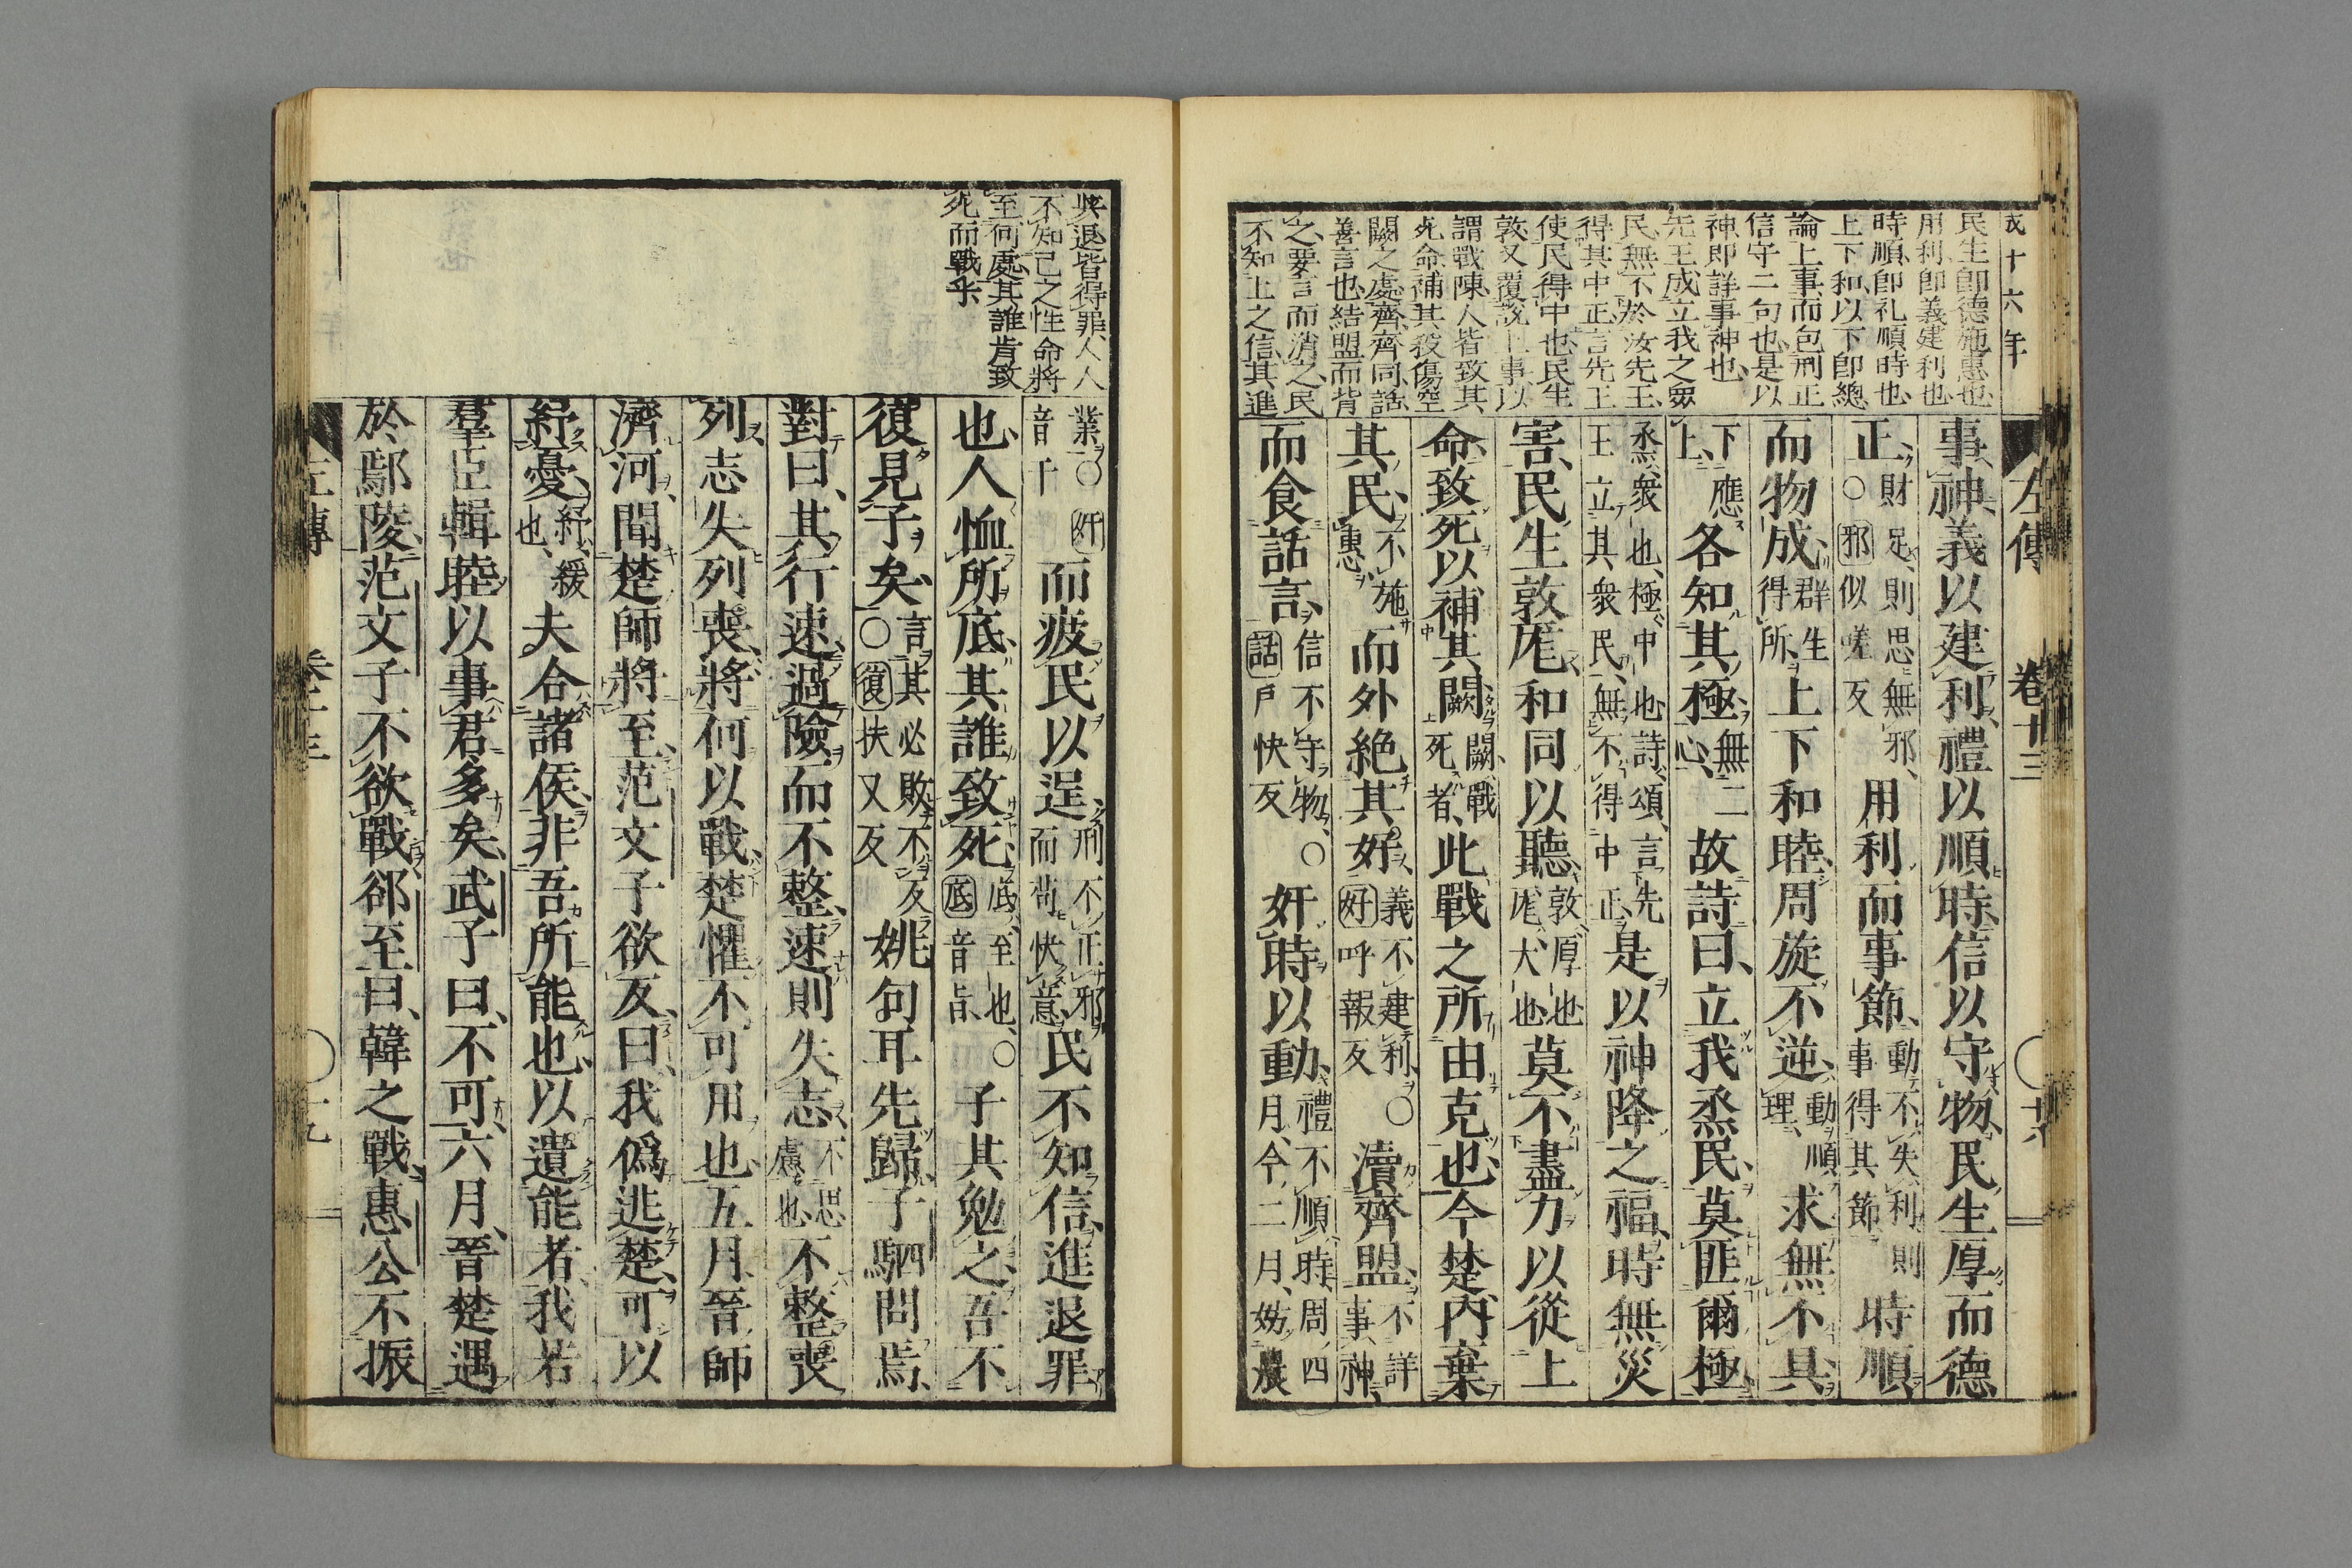 成十六年
民生即德施惠也
用利即義建利也
時順即礼順時也
上下和以下即總
論上事而包刑正
信守二句也是以
神即詳事神也
先王成立我之衆
民無不於汝先王
得其中正言先王
使民得中也民生
敦又覆説上事以
謂戰陳人皆致其
死命補其殺傷空
闕之處齊齊同話
善言也結盟而背
之要言而消之民
不知上之信其進
左傳 卷十三
事神義以建利禮以順時信以守物民生厚而德
正財足則思無邪○邪似嗟反用利而事節動不失利則事得其節時順
而物成群生得所上下和睦周旋不逆動順理求無不具
下應上各知其極無二心故詩曰立我烝民莫匪爾極
烝衆也極中也詩頌言先王立其衆民無不得中正是以神降之福時無災
害民生敦厖和同以聽敦厚也厖大也莫不盡力以從上
命致死以補其闕闕戰死者此戰之所由克也今楚內棄
其民不施惠而外絶其好義不建利○好呼報反瀆齊盟不詳事神
而食話言信不守物○話戶快反奸時以動禮不順時周四月今二月妨農
吳退皆得罪人人
不知己之性命將
至何處其誰肯致
死而戰乎
業○奸音干而疲民以逞刑不正邪而苟快意民不知信進退罪
也人恤所底其誰致死底至也○底音旨子其勉之吾不
復見子矣言其必敗不反○復扶又反姚句耳先歸子駟問焉
對曰其行速過險而不整速則失志不思慮也不整喪
列志失列喪將何以戰楚懼不可用也五月晉師
濟河聞楚師將至范文子欲反曰我僞逃楚可以
紓憂紓緩也夫合諸侯非吾所能也以遺能者我若
羣臣輯睦以事君多矣武子曰不可六月晉楚遇
於鄢陵范文子不欲戰郤至曰韓之戰惠公不振